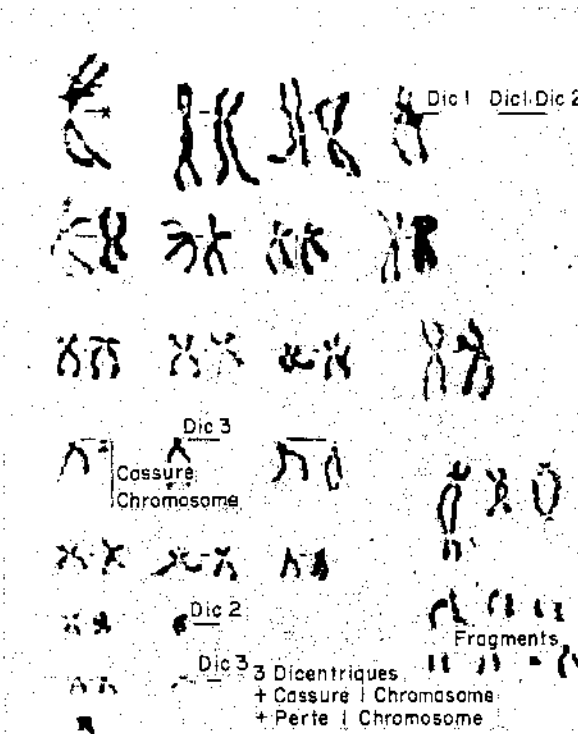 Dic 1 Dic1.Dic 2
Dic 3
Cassure
Chromosome
Dic 2
Fragments
Dic 3
3 Dicentriques
+ Cassure 1 Chromosome
+ Perte 1 Chromosome